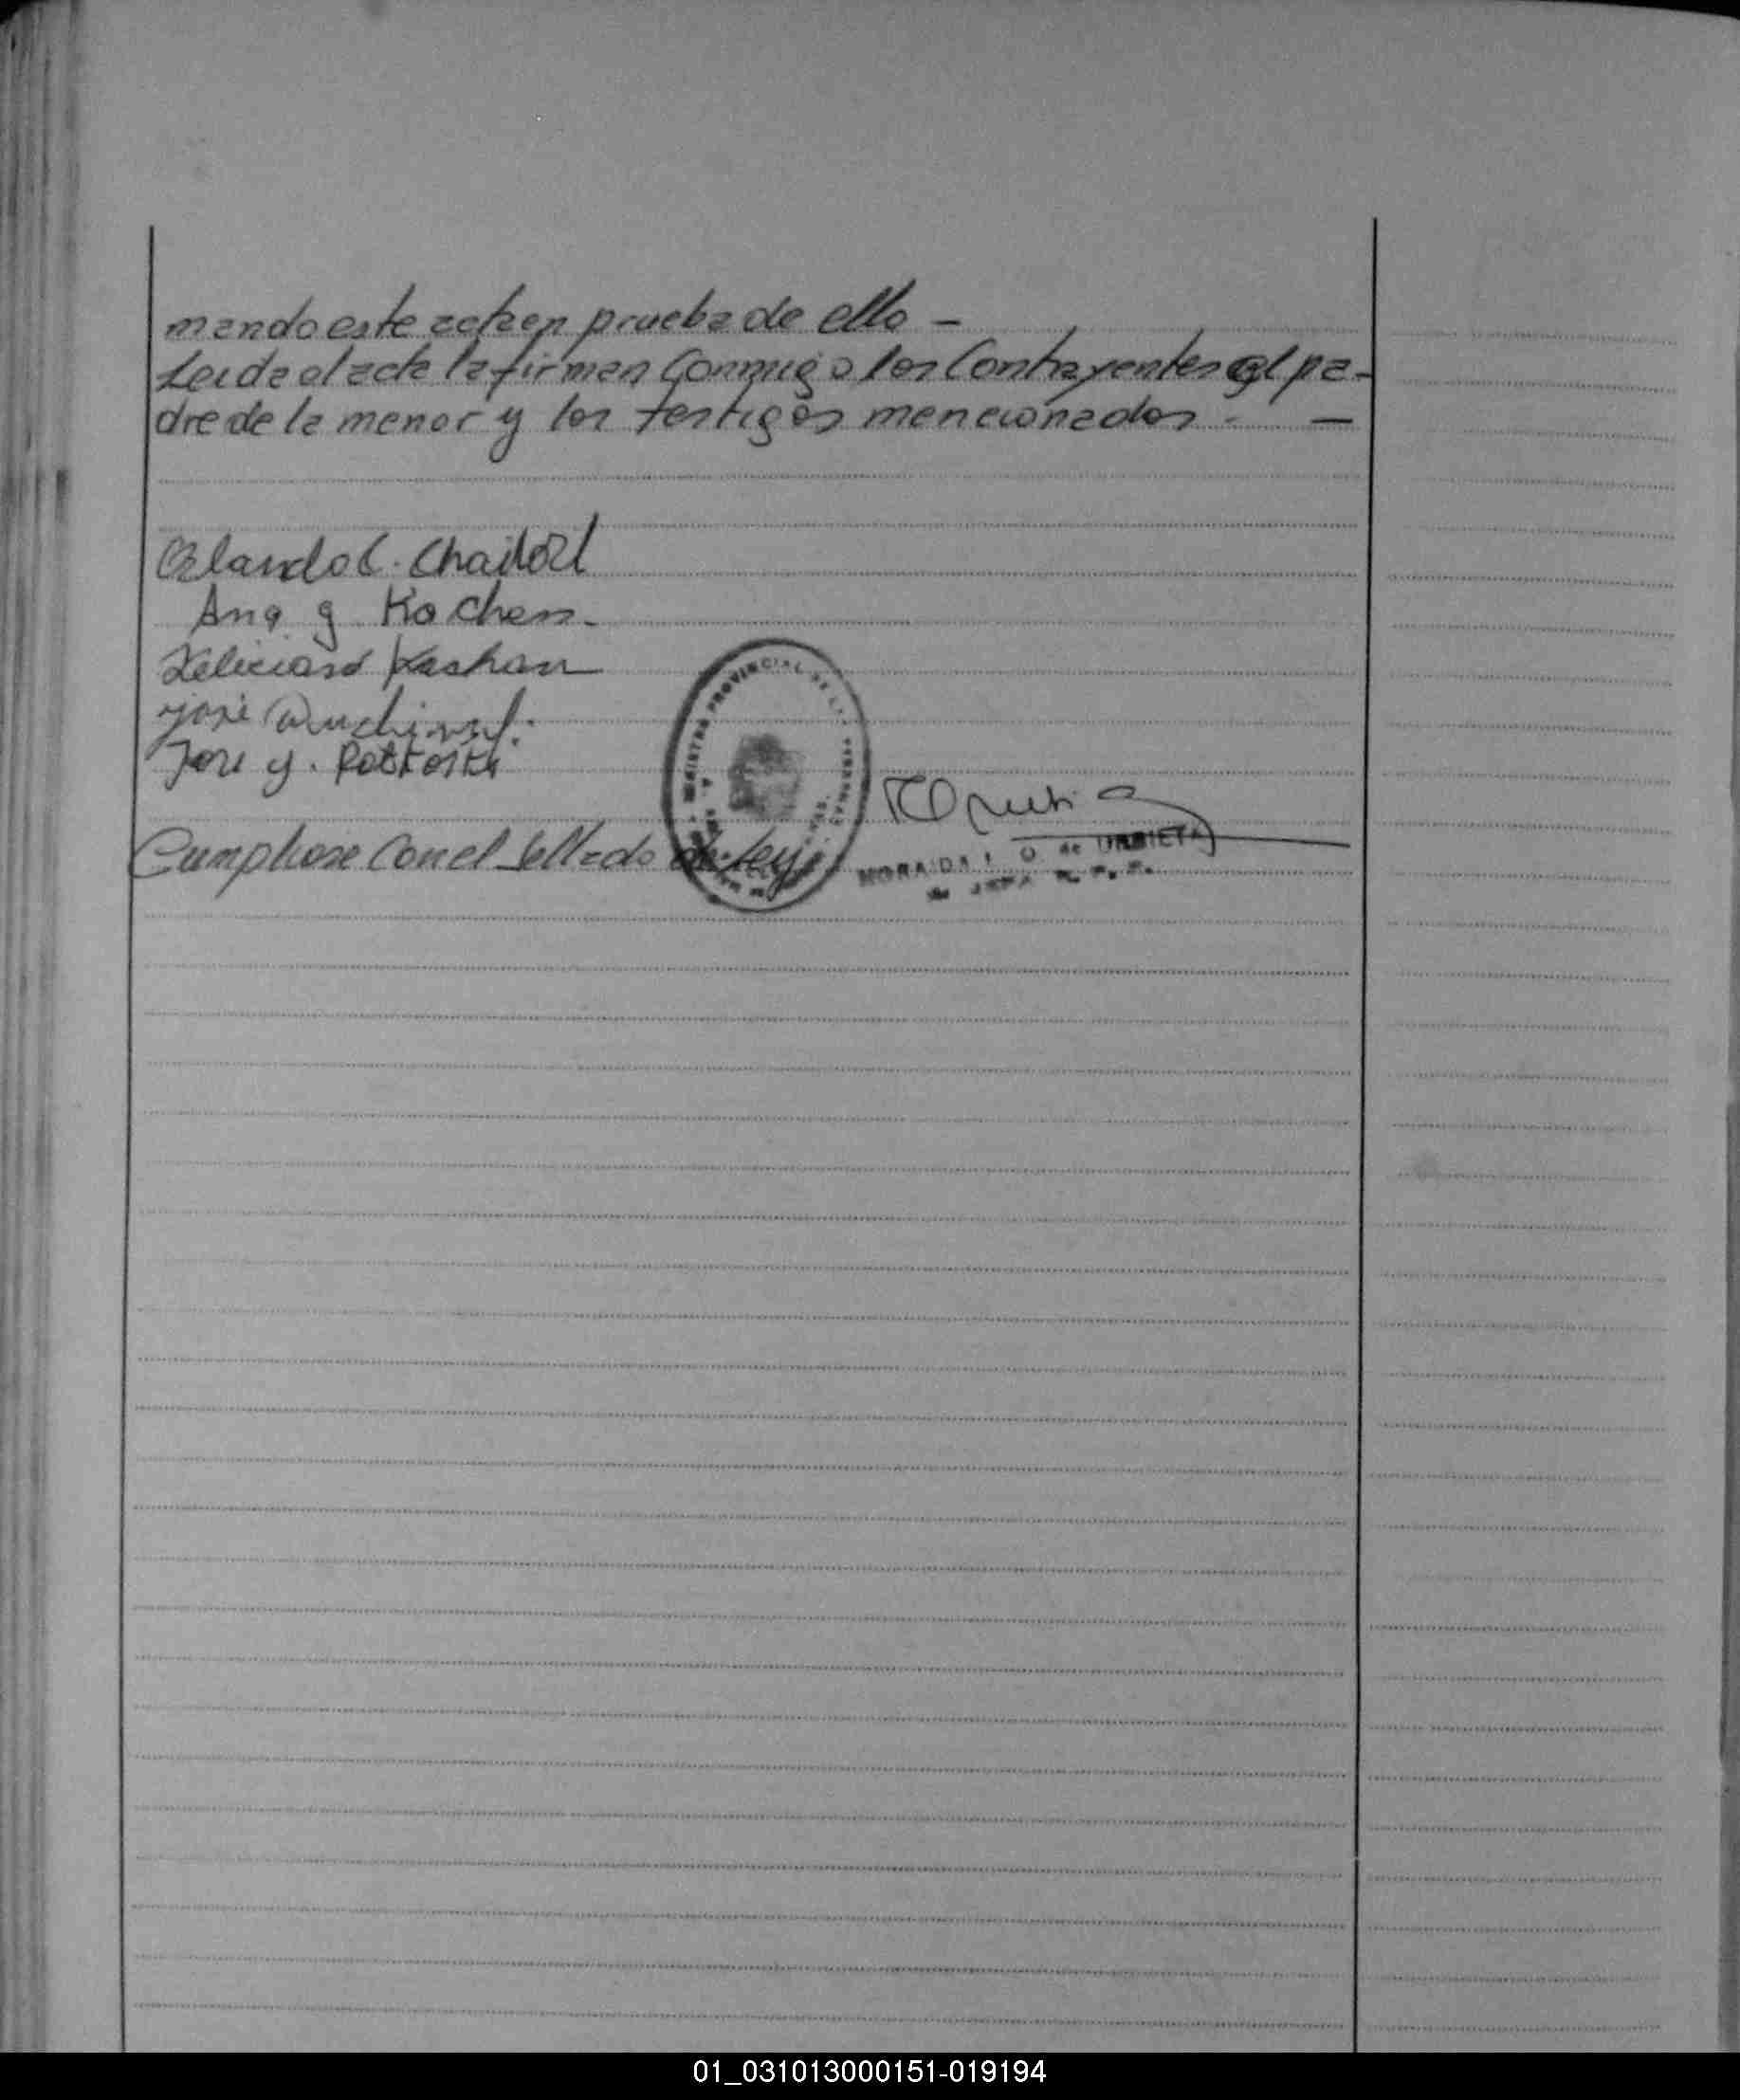 mando este acta en prueba de ello -
Leida el acta la firman Conmigo los Contrayentes el pa-
dre de la menor y los testigos mencionados - -
Orlando C.
Ana g Kachen-
Feliciano Kachan
José
José y.
REGISTRO PROVINCIAL DE
Cumpliose Con el Sellado de Ley
NORAIDA O de URBIETA
JEFA
01_031013000151-019194